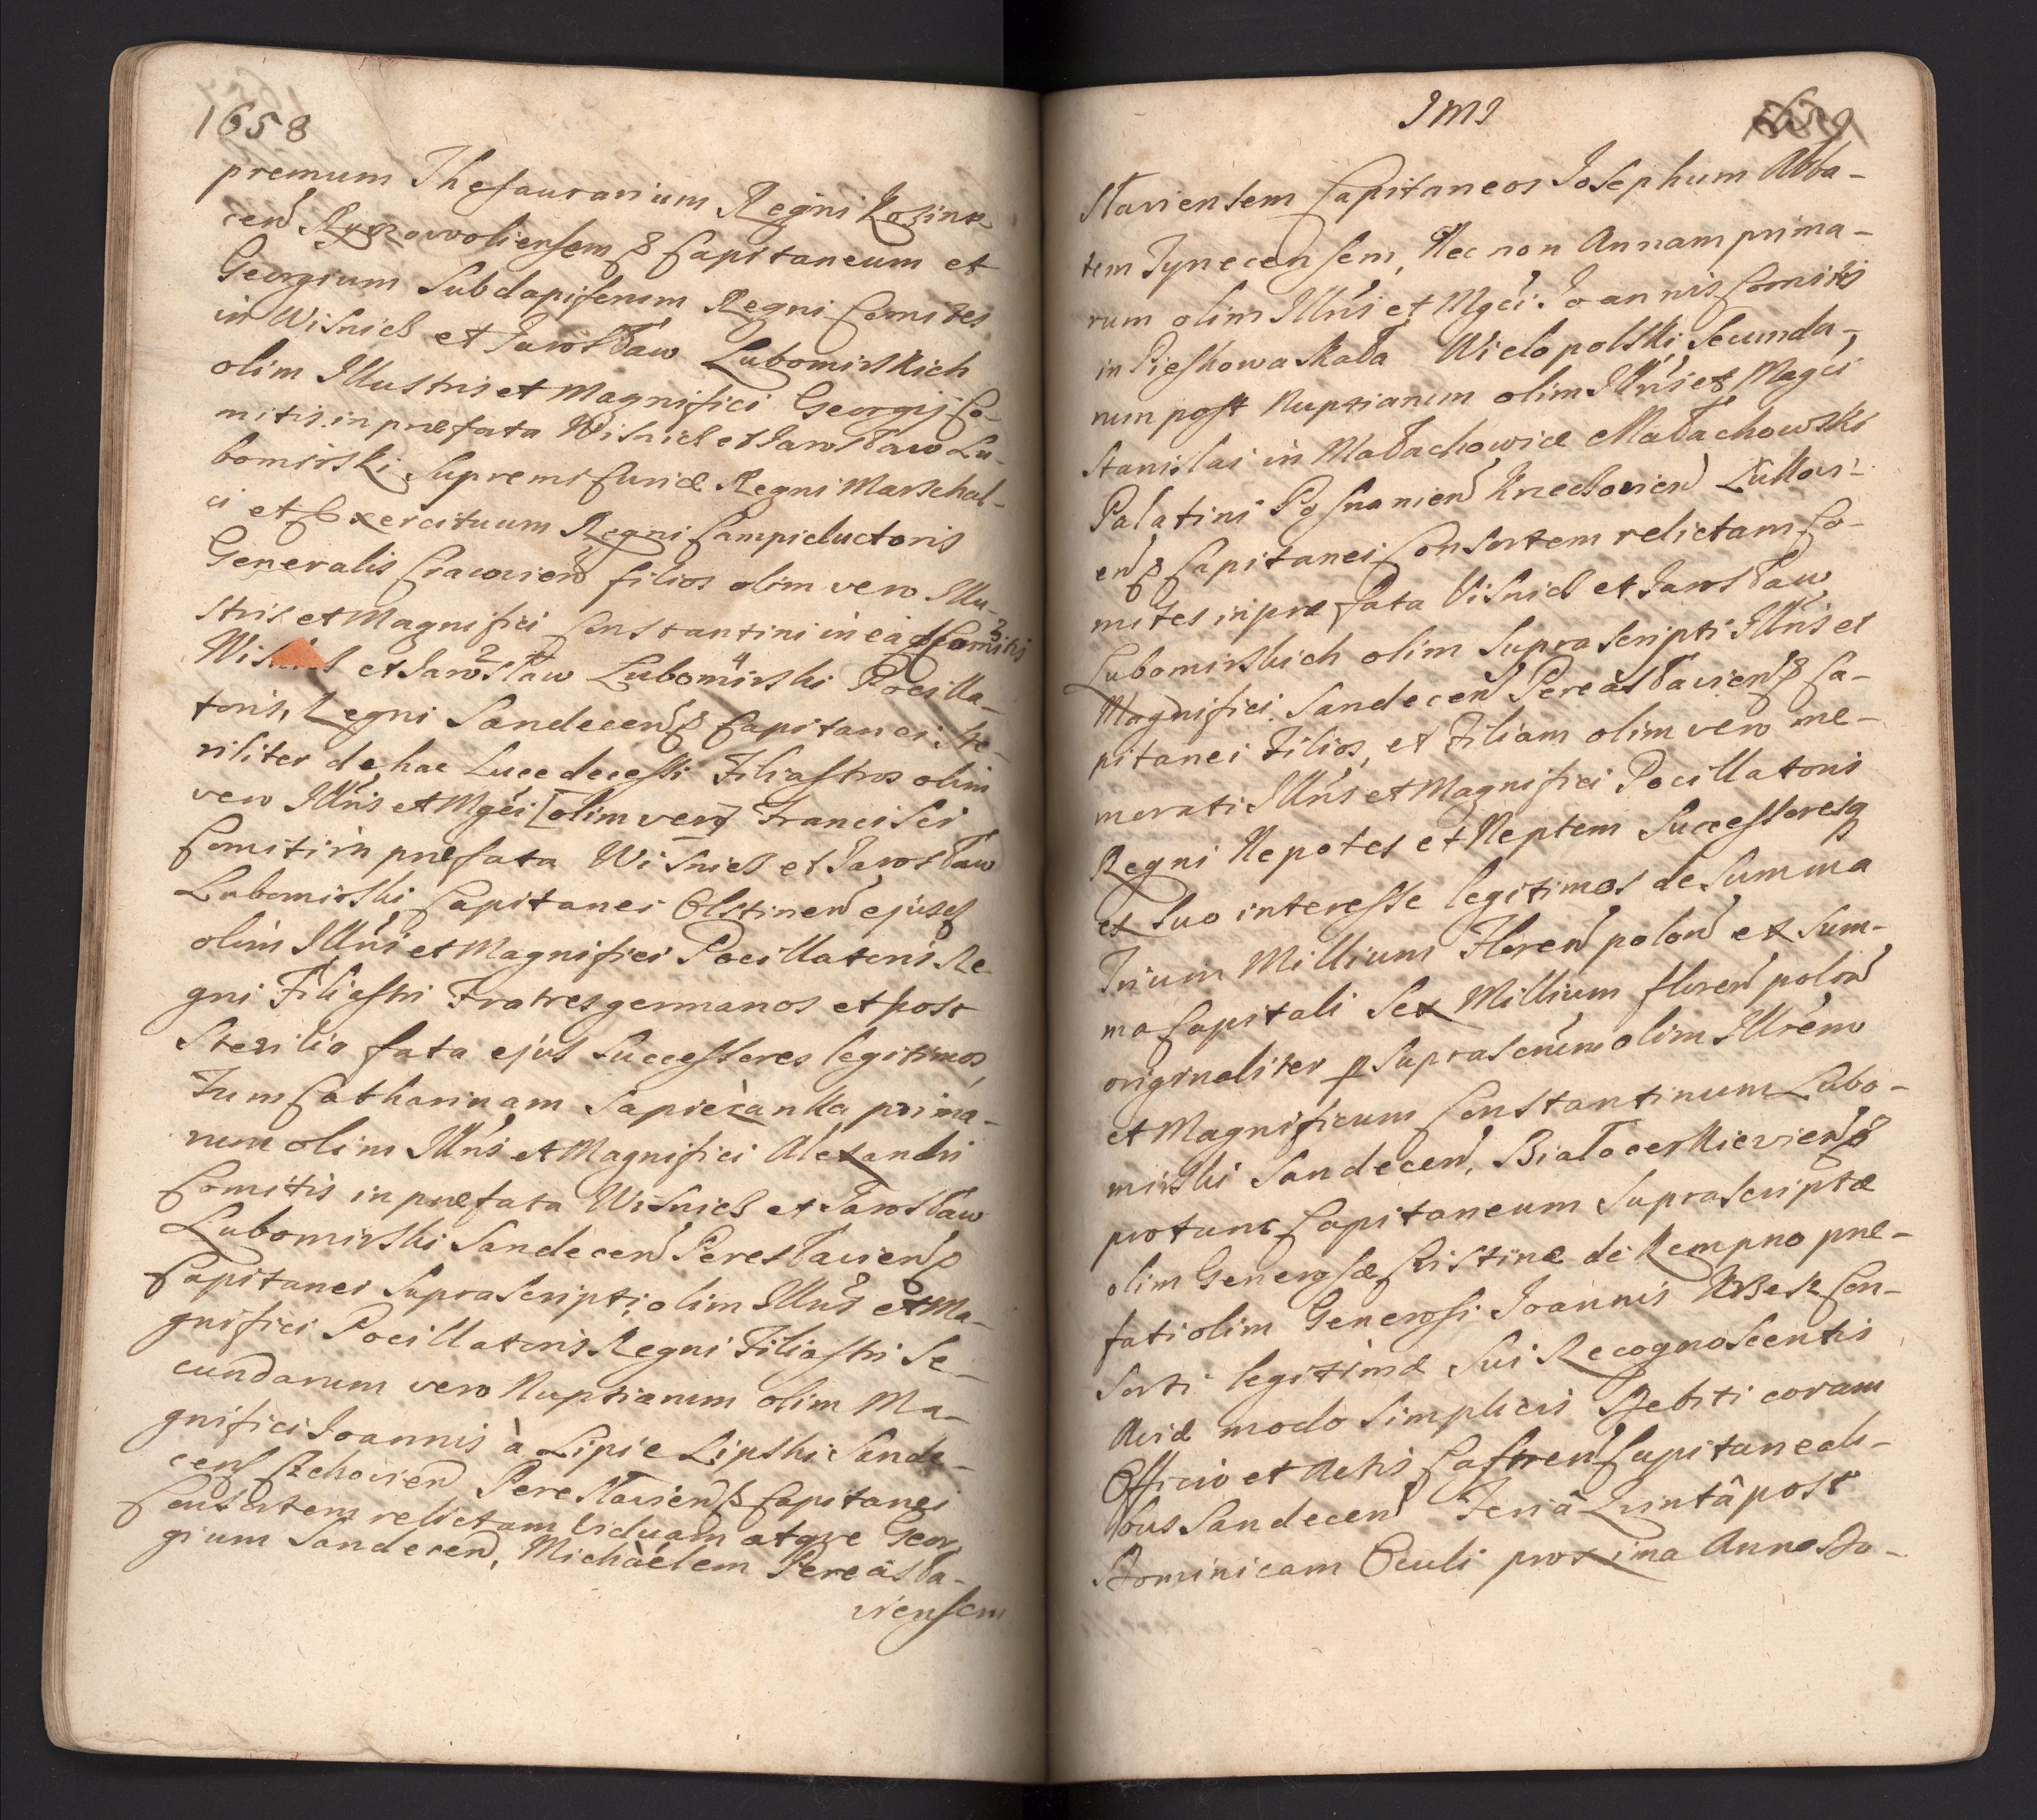 1658
premum Thesaurarium Regni Kozin 
cen Ryczowoliensem & Capitaneum et
Georgium Subdapiferum Regni Comites
in Wisnicz et Jarosław Lubomirskich
olim Illustris et Magnifici Georgij Co-
mitis in præfata Wisnicz et Jarosław Lu-
bomirski Supremi Curiæ Regni Marschal-
ci et Exercituum Regni Campiductoris
Generalis Cracovien filios olim vero Illu-
stris et Magnifici Constantini in ea Comitis
et Jarosław Lubomirski Pocilla-
toris, Regni Sandecen & Capitanei ste-
riliter de hac Luce decessi Filiastros olim
vero Illris et Mgci [olim vero] Francisci
Comiti in præfata Wisnicz et Jarosław
Lubomirski Capitanei Olstinen ejusq
olim Illris et Magnifici Pocillatoris Re-
gni Filiastri Fratres germanos et post
Sterilia fata ejus Successores legitimos,
Tum Catharinam Sapiezanka prima-
rum olim Illris et Magnifici Alexandri
Comitis in præfata Wisnicz et Jarosław
Lubomirski Sandecen Peresławien &
Capitanei Suprascripti olim Illris et Ma-
gnifici Pocillatoris Regni Filiastri Se-
cundarum vero Nuptiarum olim Ma-
gnifici Joannis à Lipie Lipski Sande-
cen Czchovien Peresławien & Capitanei
Consortem relictam Viduam atque Geor-
gium Sandecen, Michàélem Pereásła-
viensem
JMJ
sławiensem Capitaneos Josephum Abba-
tem Tynecensem, Nec non Annam prima-
rum olim Illris et Mgci Joannis Comitis
in Pieskowa Skała Wielopolski, Secunda-
rum post Nuptiarum olim Illris et Mgci
Stanislai in Małachowicæ Małachowski
Palatini Posnanien Krzechovien Lukovi-
en & Capitanei Consortem relictam Co-
mites in præfata Visnicz et Jarosław
Lubomirskich olim Suprascripti Illris et
Magnifici Sandecen Pereásławien & Ca-
pitanei Filios, et Filiam olim vero me-
morati Illris et Magnifici Pocillatoris
Regni Nepotes et Neptem Successoresq
ex Suo interesse legitimos de Summa
Trium Millium Floren polon ex Sum-
ma Capitali Sex Millium floren polon
originaliter p Suprascrum olim Illrem
et Magnificum Constantinum Lubo-
mirski Sandecen, Białocerkievien &
protunc Capitaneum Suprascriptæ
olim Generosæ Cristinæ de Kempno præ-
fati olim Generosi Joannis Con-
sorti legitimæ Sui Recognoscentis
Aviæ modo Simplicis Debiti coram
Officio et Actis Castren Capitaneali-
bus Sandecen Feriâ Quintâ post
Dominicam Oculi proxima Anno Do-